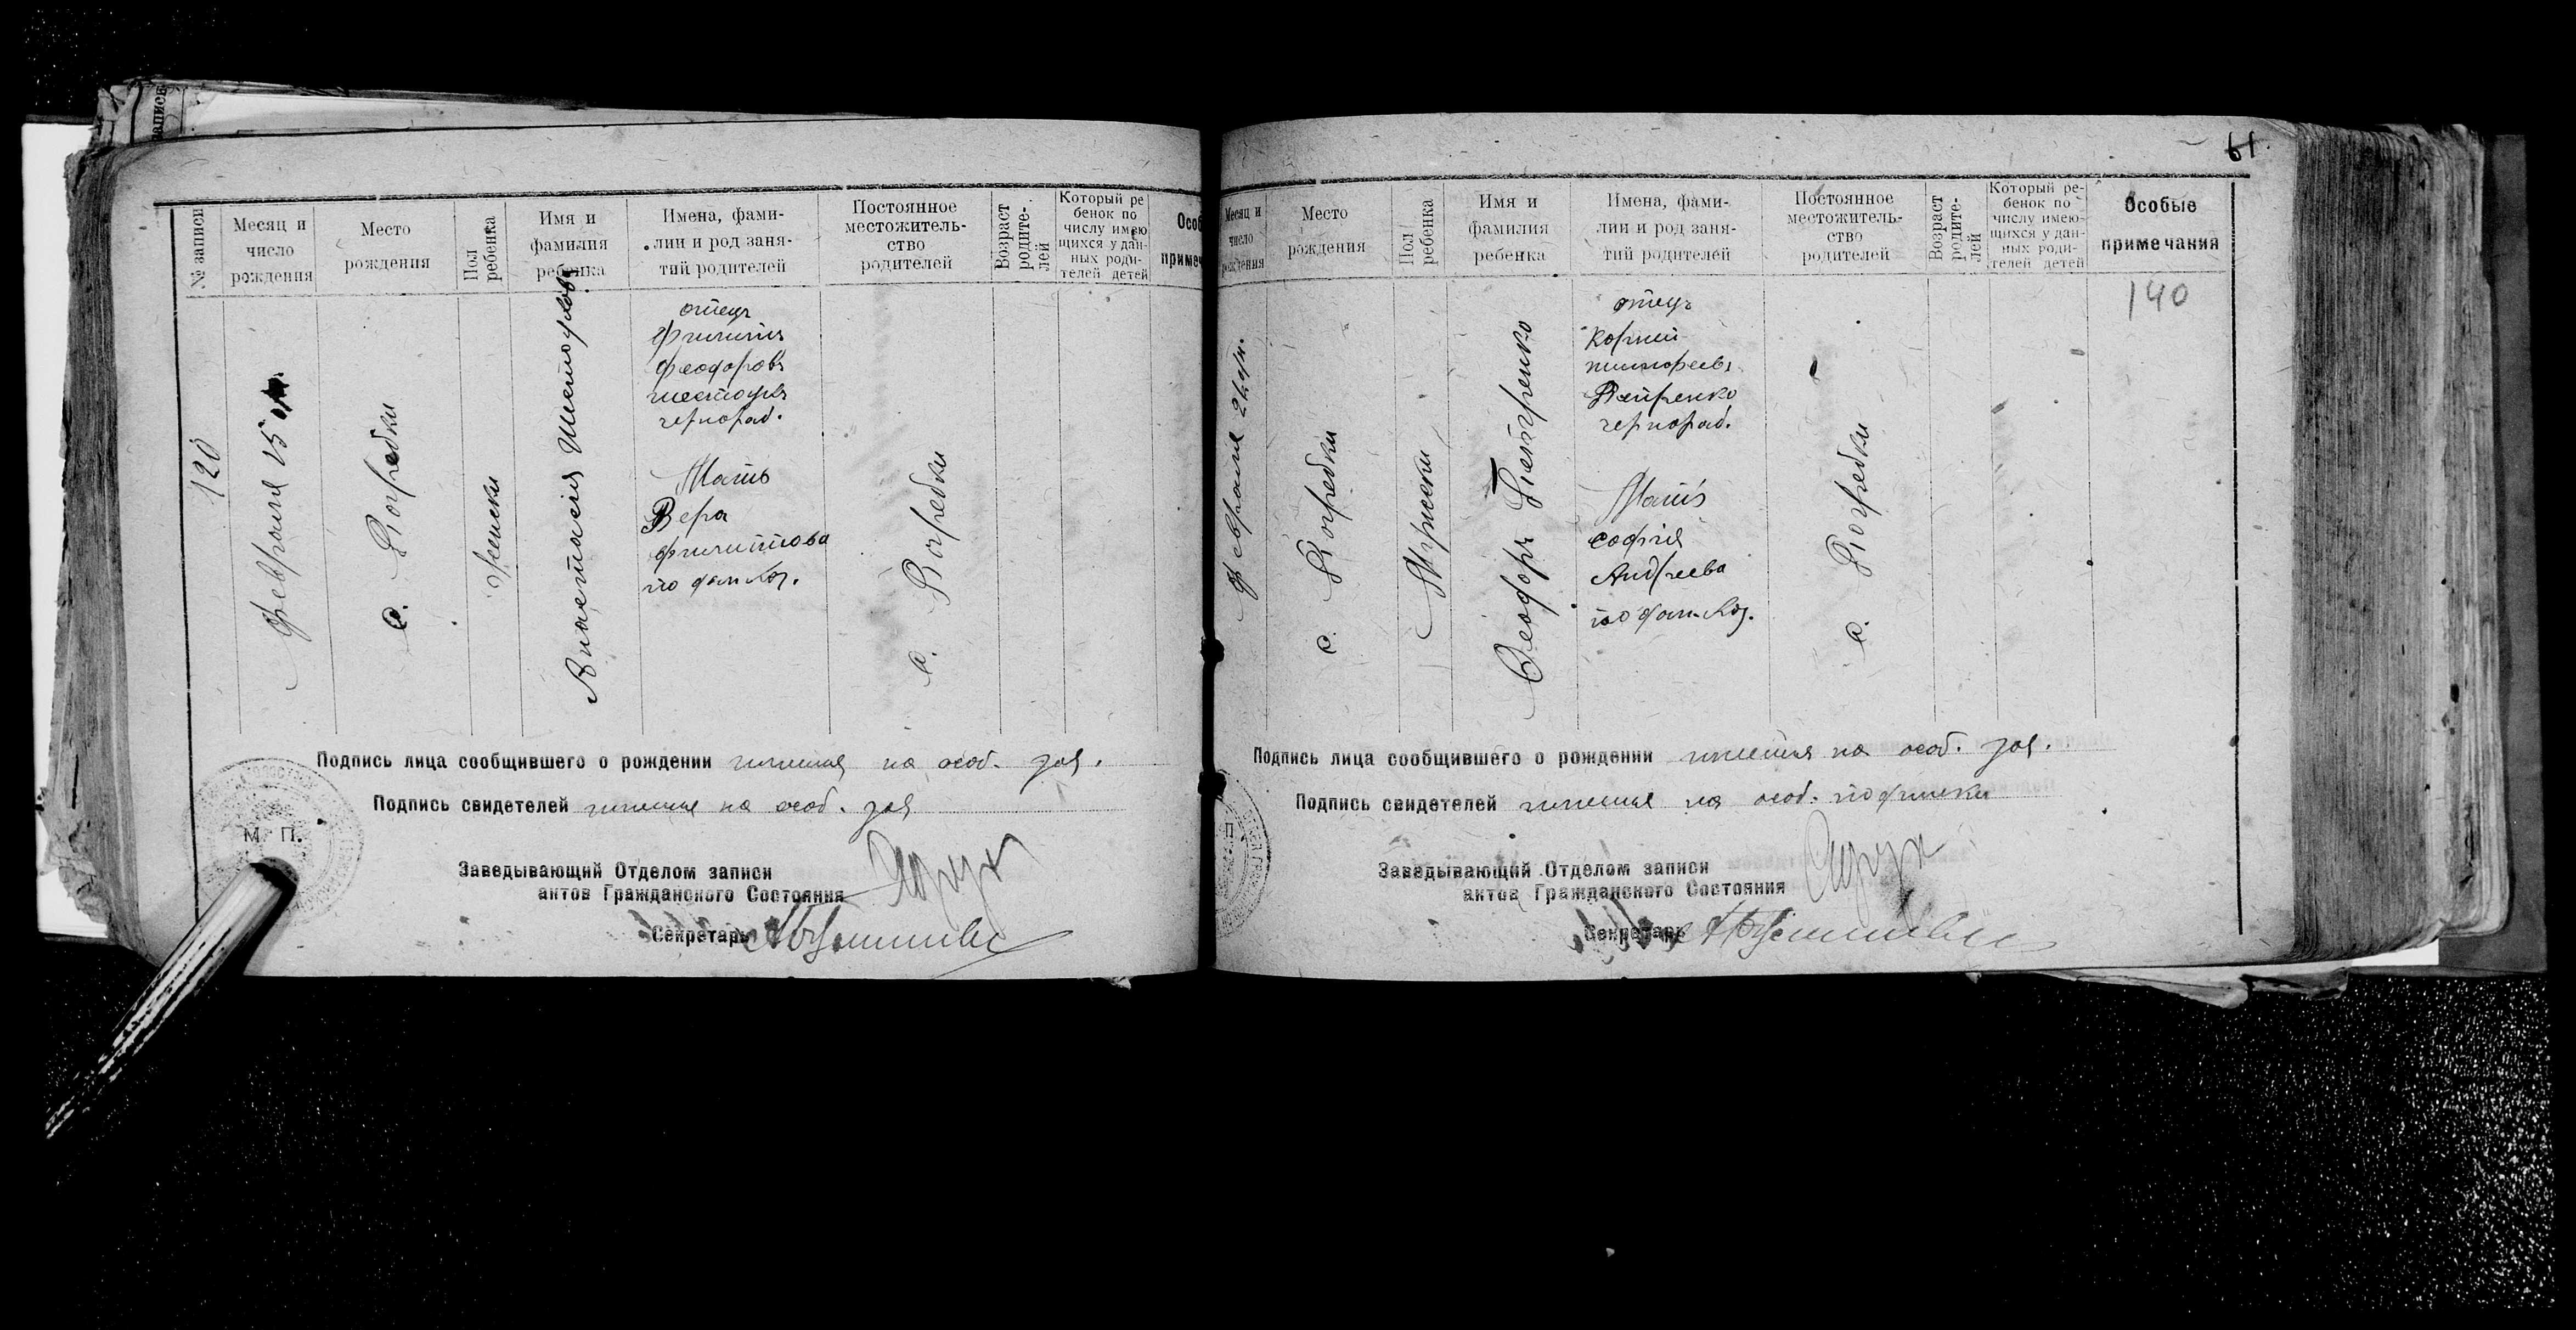 записи
№ записи
Месяц и
число
рождения
Место
рождения
Пол
ребенка
Имя и
фамилия
ребенка
Имена, фами-
лии и род заня-
тий родителей
Постоянное
местожитель-
ство
родителей
Возраст
родите-
лей
Который ре
бенок по
числу имею
щихся у дан-
ных роди-
телей детей
Особ
примеч
120
февраля 15
с. Погребки
женски
Анастасия Шестоухова
отец
филипп
феодоровъ
шестоухъ
чернораб.
Мать
Вера
филиппова
по фам.
с. Погребки
Подпись лица сообщившего о рождении имется на особ. зая.
Подпись свидетелей имется на особ. зая
М. П.
Заведывающий Отделом записи
актов Гражданского Состояния
Секретарь
61
Месяц и
число
рождения
Место
рождения
Пол
ребенка
Имя и
фамилия
ребенка
Имена, фами-
лии и род заня-
тий родителей
Постоянное
местожитель-
ство
родителей
Возраст
родите-
лей
Который ре-
бенок по
числу имею-
щихся у дан-
ных роди-
телей детей
Особые
примечания
140
февраля
с. Погребки
Мужески
Феодоръ Петренко
отец
Корний
тимофеевъ
Петренко
чернораб.
Мать
софия
Андреева
по фам.
с. Погребки
Подпись лица сообщившего о рождении имется на особ. зая.
Подпись свидетелей имется на особ. подписки
П.
Заведывающий Отделом записи
актов Гражданского Состояния
Секретарь